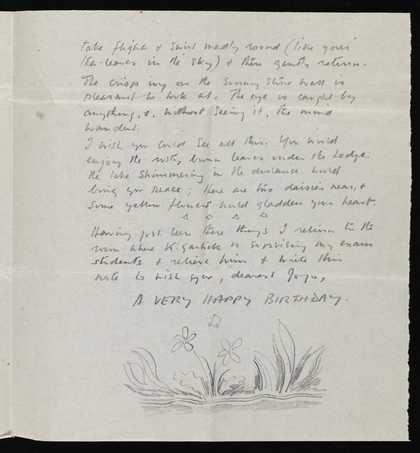 take flight & swirl madly round (like your
tea-leaves in the sky) & then gently return.
The crisp ivy on the sunny stone wall is
pleasant to look at. The eye is caught by
anything, &, without seeing it, the mind
wanders.
I wish you could see all this. You would
enjoy the rusty brown leaves under the hedge.
The lake shimmering in the distance would
bring you peace; there are two daisies near, &
some yellow flowers would gladden your heart.
Having just seen these things I return to the
room where K. is supervising my exam
students & relieve him & write this
note to wish you, dearest Joyce,
A VERY HAPPY BIRTHDAY.